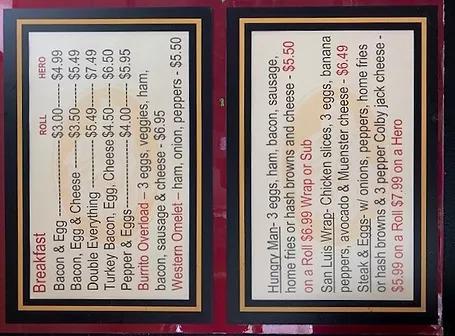 Breakfast ROLL HERO
Bacon & Egg ----------$3.00------ $4.99
Bacon, Egg & Cheese -----$3.50----- $5.49
Double Everything ---------$5.49---- $7.49
Turkey Bacon, Egg, Cheese $4.50 ---- $6.50
Pepper & Eggs------------ $4.00 ---- $5.95
Burrito Overload – 3 eggs, veggies, ham,
bacon, sausage & cheese - $6.95
Western Omelet – ham, onion, peppers - $5.50
Hungry Man- 3 eggs, ham, bacon, sausage,
home fries or hash browns and cheese - $5.50
on a Roll $6.99 Wrap or Sub
San Luis Wrap- Chicken slices, 3 eggs, banana
peppers, avocado & Muenster cheese - $6.49
Steak & Eggs- w/ onions, peppers, home fries
or hash browns & 3 pepper Colby jack cheese -
$5.99 on a Roll $7.99 on a Hero